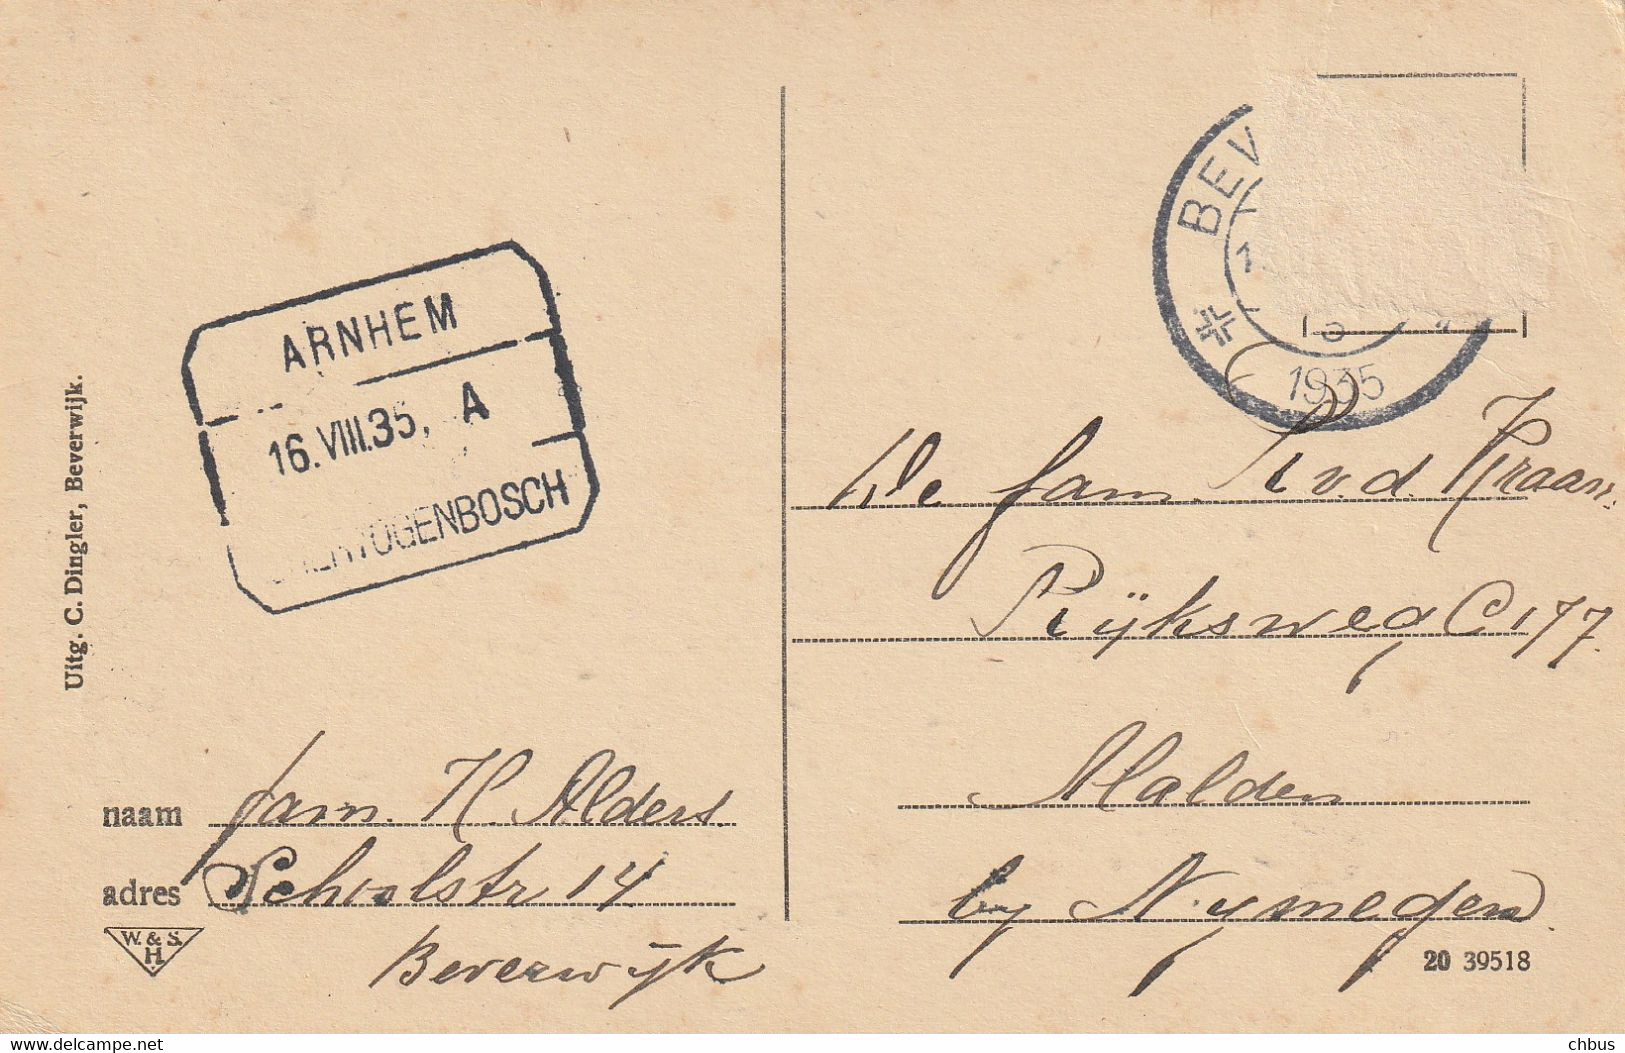 Uitg. C. Dingler, Beverwijk.
ARNHEM
16.VIII.35, A
HERTOGENBOSCH
BEV
1935
De fam. R v.d. Kraan.
Rijksweg C 177.
Malden
by Nijmegen
naam fam. H. Alders
adres Schoolstr 14
Beverwijk
W. & S.
H.
20 39518
delcampe.net
chbus